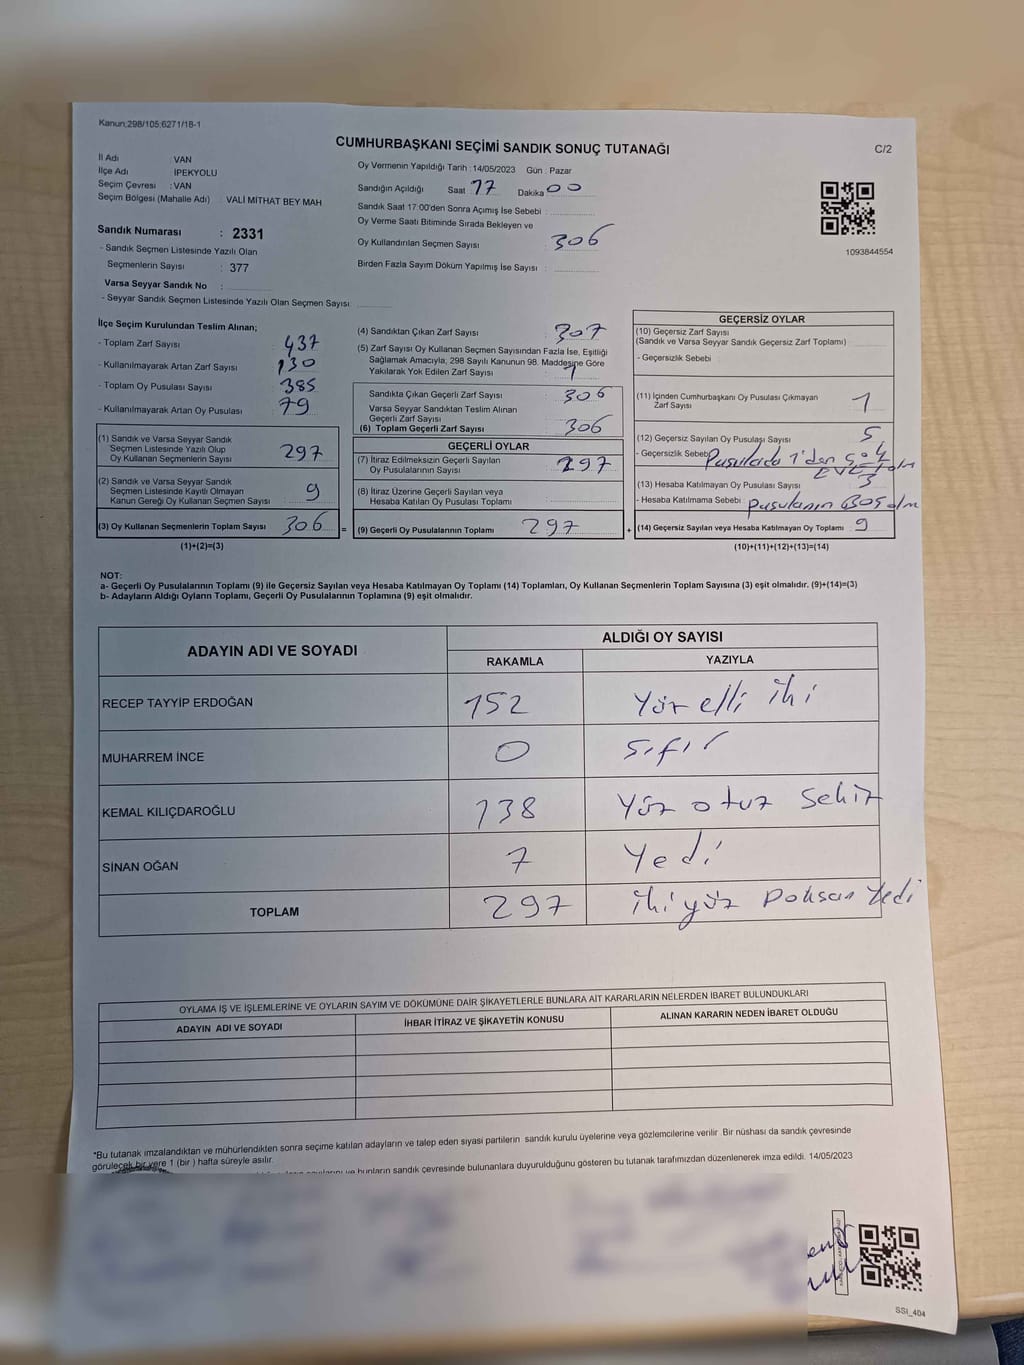 Kanun;298/105;6271/18-1
CUMHURBAŞKANI SEÇİMİ SANDIK SONUÇ TUTANAĞI
C/2
İl Adı : VAN
İlçe Adı : İPEKYOLU
Seçim Çevresi : VAN
Seçim Bölgesi (Mahalle Adı) : VALİ MİTHAT BEY MAH
Sandık Numarası : 2331
- Sandık Seçmen Listesinde Yazılı Olan
Seçmenlerin Sayısı : 377
Varsa Seyyar Sandık No :
- Seyyar Sandık Seçmen Listesinde Yazılı Olan Seçmen Sayısı:
Oy Vermenin Yapıldığı Tarih : 14/05/2023 Gün : Pazar
Sandığın Açıldığı Saat 17 Dakika 00
Sandık Saat 17:00'den Sonra Açımış İse Sebebi :
Oy Verme Saati Bitiminde Sırada Bekleyen ve
Oy Kullandırılan Seçmen Sayısı : 306
Birden Fazla Sayım Döküm Yapılmış İse Sayısı :
1093844554
İlçe Seçim Kurulundan Teslim Alınan;
- Toplam Zarf Sayısı : 437
- Kullanılmayarak Artan Zarf Sayısı : 130
- Toplam Oy Pusulası Sayısı : 385
- Kullanılmayarak Artan Oy Pusulası : 79
(1) Sandık ve Varsa Seyyar Sandık
Seçmen Listesinde Yazılı Olup
Oy Kullanan Seçmenlerin Sayısı : 297
(2) Sandık ve Varsa Seyyar Sandık
Seçmen Listesinde Kayıtlı Olmayan
Kanun Gereği Oy Kullanan Seçmen Sayısı : 9
(3) Oy Kullanan Seçmenlerin Toplam Sayısı : 306 =
(1)+(2)=(3)
(4) Sandıktan Çıkan Zarf Sayısı : 307
(5) Zarf Sayısı Oy Kullanan Seçmen Sayısından Fazla İse, Eşitliği
Sağlamak Amacıyla, 298 Sayılı Kanunun 98. Maddesine Göre
Yakılarak Yok Edilen Zarf Sayısı : 1
Sandıkta Çıkan Geçerli Zarf Sayısı : 306
Varsa Seyyar Sandıktan Teslim Alınan
Geçerli Zarf Sayısı :
(6) Toplam Geçerli Zarf Sayısı : 306
GEÇERLİ OYLAR
(7) İtiraz Edilmeksizin Geçerli Sayılan
Oy Pusulalarının Sayısı : 297
(8) İtiraz Üzerine Geçerli Sayılan veya
Hesaba Katılan Oy Pusulası Toplamı :
(9) Geçerli Oy Pusulalarının Toplamı : 297 +
GEÇERSİZ OYLAR
(10) Geçersiz Zarf Sayısı
(Sandık ve Varsa Seyyar Sandık Geçersiz Zarf Toplamı)
- Geçersizlik Sebebi :
(11) İçinden Cumhurbaşkanı Oy Pusulası Çıkmayan
Zarf Sayısı : 1
(12) Geçersiz Sayılan Oy Pusulası Sayısı : 5
- Geçersizlik Sebebi Pusulada 1'den
EVET
(13) Hesaba Katılmayan Oy Pusulası Sayısı : 3
- Hesaba Katılmama Sebebi : pusulanın BOŞ olm
(14) Geçersiz Sayılan veya Hesaba Katılmayan Oy Toplamı : 9
(10)+(11)+(12)+(13)=(14)
NOT:
a- Geçerli Oy Pusulalarının Toplamı (9) ile Geçersiz Sayılan veya Hesaba Katılmayan Oy Toplamı (14) Toplamları, Oy Kullanan Seçmenlerin Toplam Sayısına (3) eşit olmalıdır. (9)+(14)=(3)
b- Adayların Aldığı Oyların Toplamı, Geçerli Oy Pusulalarının Toplamına (9) eşit olmalıdır.
ADAYIN ADI VE SOYADI ALDIĞI OY SAYISI
RAKAMLA YAZIYLA
RECEP TAYYİP ERDOĞAN 152 Yüz elli iki
MUHARREM İNCE 0 Sıfır
KEMAL KILIÇDAROĞLU 138 Yüz otuz sekiz
SİNAN OĞAN 7 Yedi
TOPLAM 297 iki yüz Doksan Yedi
OYLAMA İŞ VE İŞLEMLERİNE VE OYLARIN SAYIM VE DÖKÜMÜNE DAİR ŞİKAYETLERLE BUNLARA AİT KARARLARIN NELERDEN İBARET BULUNDUKLARI
ADAYIN ADI VE SOYADI İHBAR İTİRAZ VE ŞİKAYETİN KONUSU ALINAN KARARIN NEDEN İBARET OLDUĞU
*Bu tutanak imzalandıktan ve mühürlendikten sonra seçime katılan adayların ve talep eden siyasi partilerin sandık kurulu üyelerine veya gözlemcilerine verilir. Bir nüshası da sandık çevresinde
görülecek bir yere 1 (bir ) hafta süreyle asılır.
ve bunların sandık çevresinde bulunanlara duyurulduğunu gösteren bu tutanak tarafımızdan düzenlenerek imza edildi. 14/05/2023
SSI_404